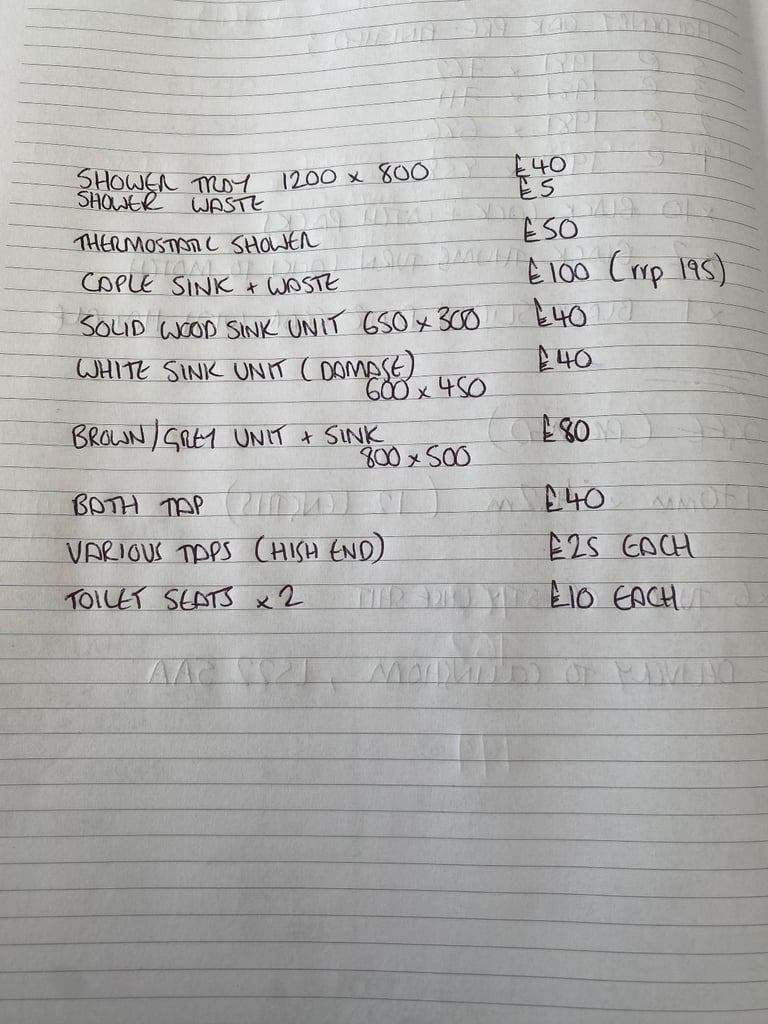 SHOWER TRAY 1200 x 800 £40
SHOWER WASTE £5
THERMOSTATIC SHOWER £50
CAPLE SINK + WASTE £100 (rrp 195)
SOLID WOOD SINK UNIT 650 x 300 £40
WHITE SINK UNIT (DAMAGE) £40
600 x 450
BROWN/GREY UNIT + SINK £80
800 x 500
BATH TAP £40
VARIOUS TAPS (HIGH END) £25 EACH
TOILET SEATS x 2 £10 EACH